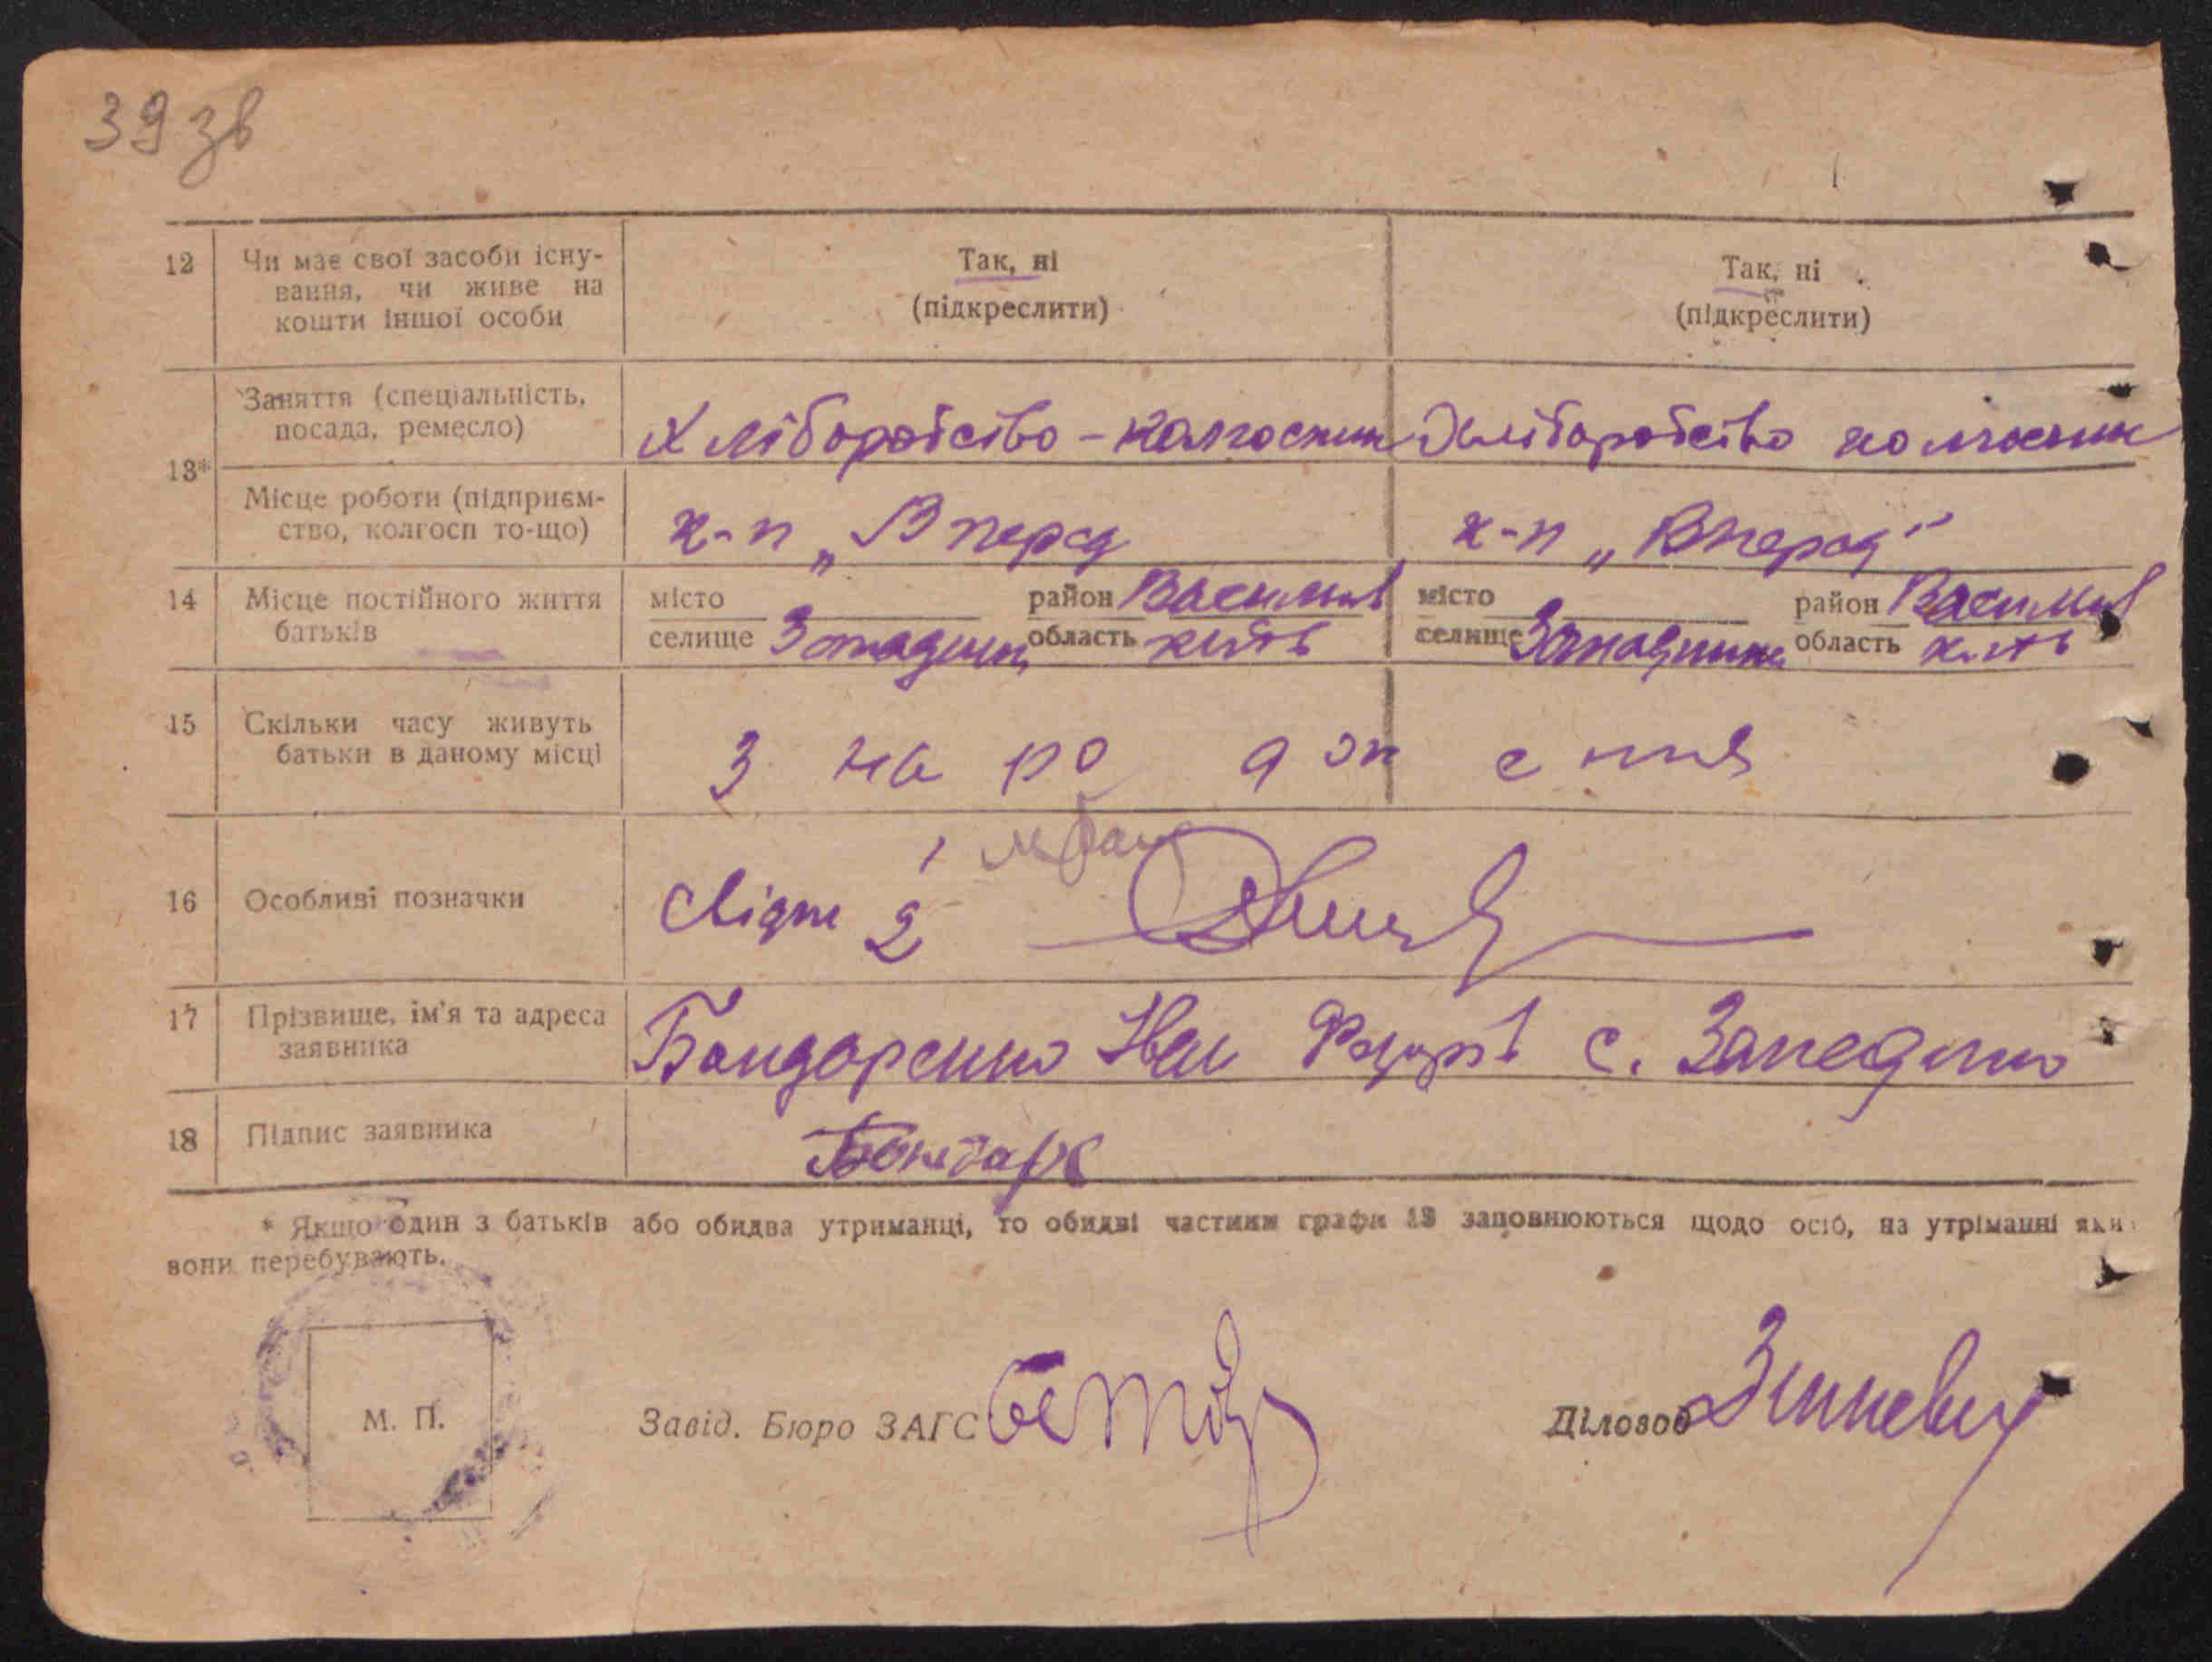 39 зв
12 Чи має свої засоби існу- Так, ні Так, ні
вання, чи живе на (підкреслити) (підкреслити)
кошти іншої особи
13* Заняття (спеціальність, Хліборобство - колгоспник Хліборобство колгоспник
посада, ремесло)
Місце роботи (підприєм- к-п „Вперед к-п „Вперед"
ство, колгосп то-що)
14 Місце постійного життя місто район Васильків місто район Васильків
батьків селище область Київ селище область Київ
15 Скільки часу живуть З народження
батьки в даному місці
16 Особливі позначки 2
17 Прізвище, ім'я та адреса Бондаренко Іван с.
заявника
18 Підпис заявника
* Якщо один з батьків або обидва утриманці, то обидві частини графи 13 заповнюються щодо осіб, на утріманні яки
вони перебувають.
М. П.
Завід. Бюро ЗАГС
Діловод Зинкевич